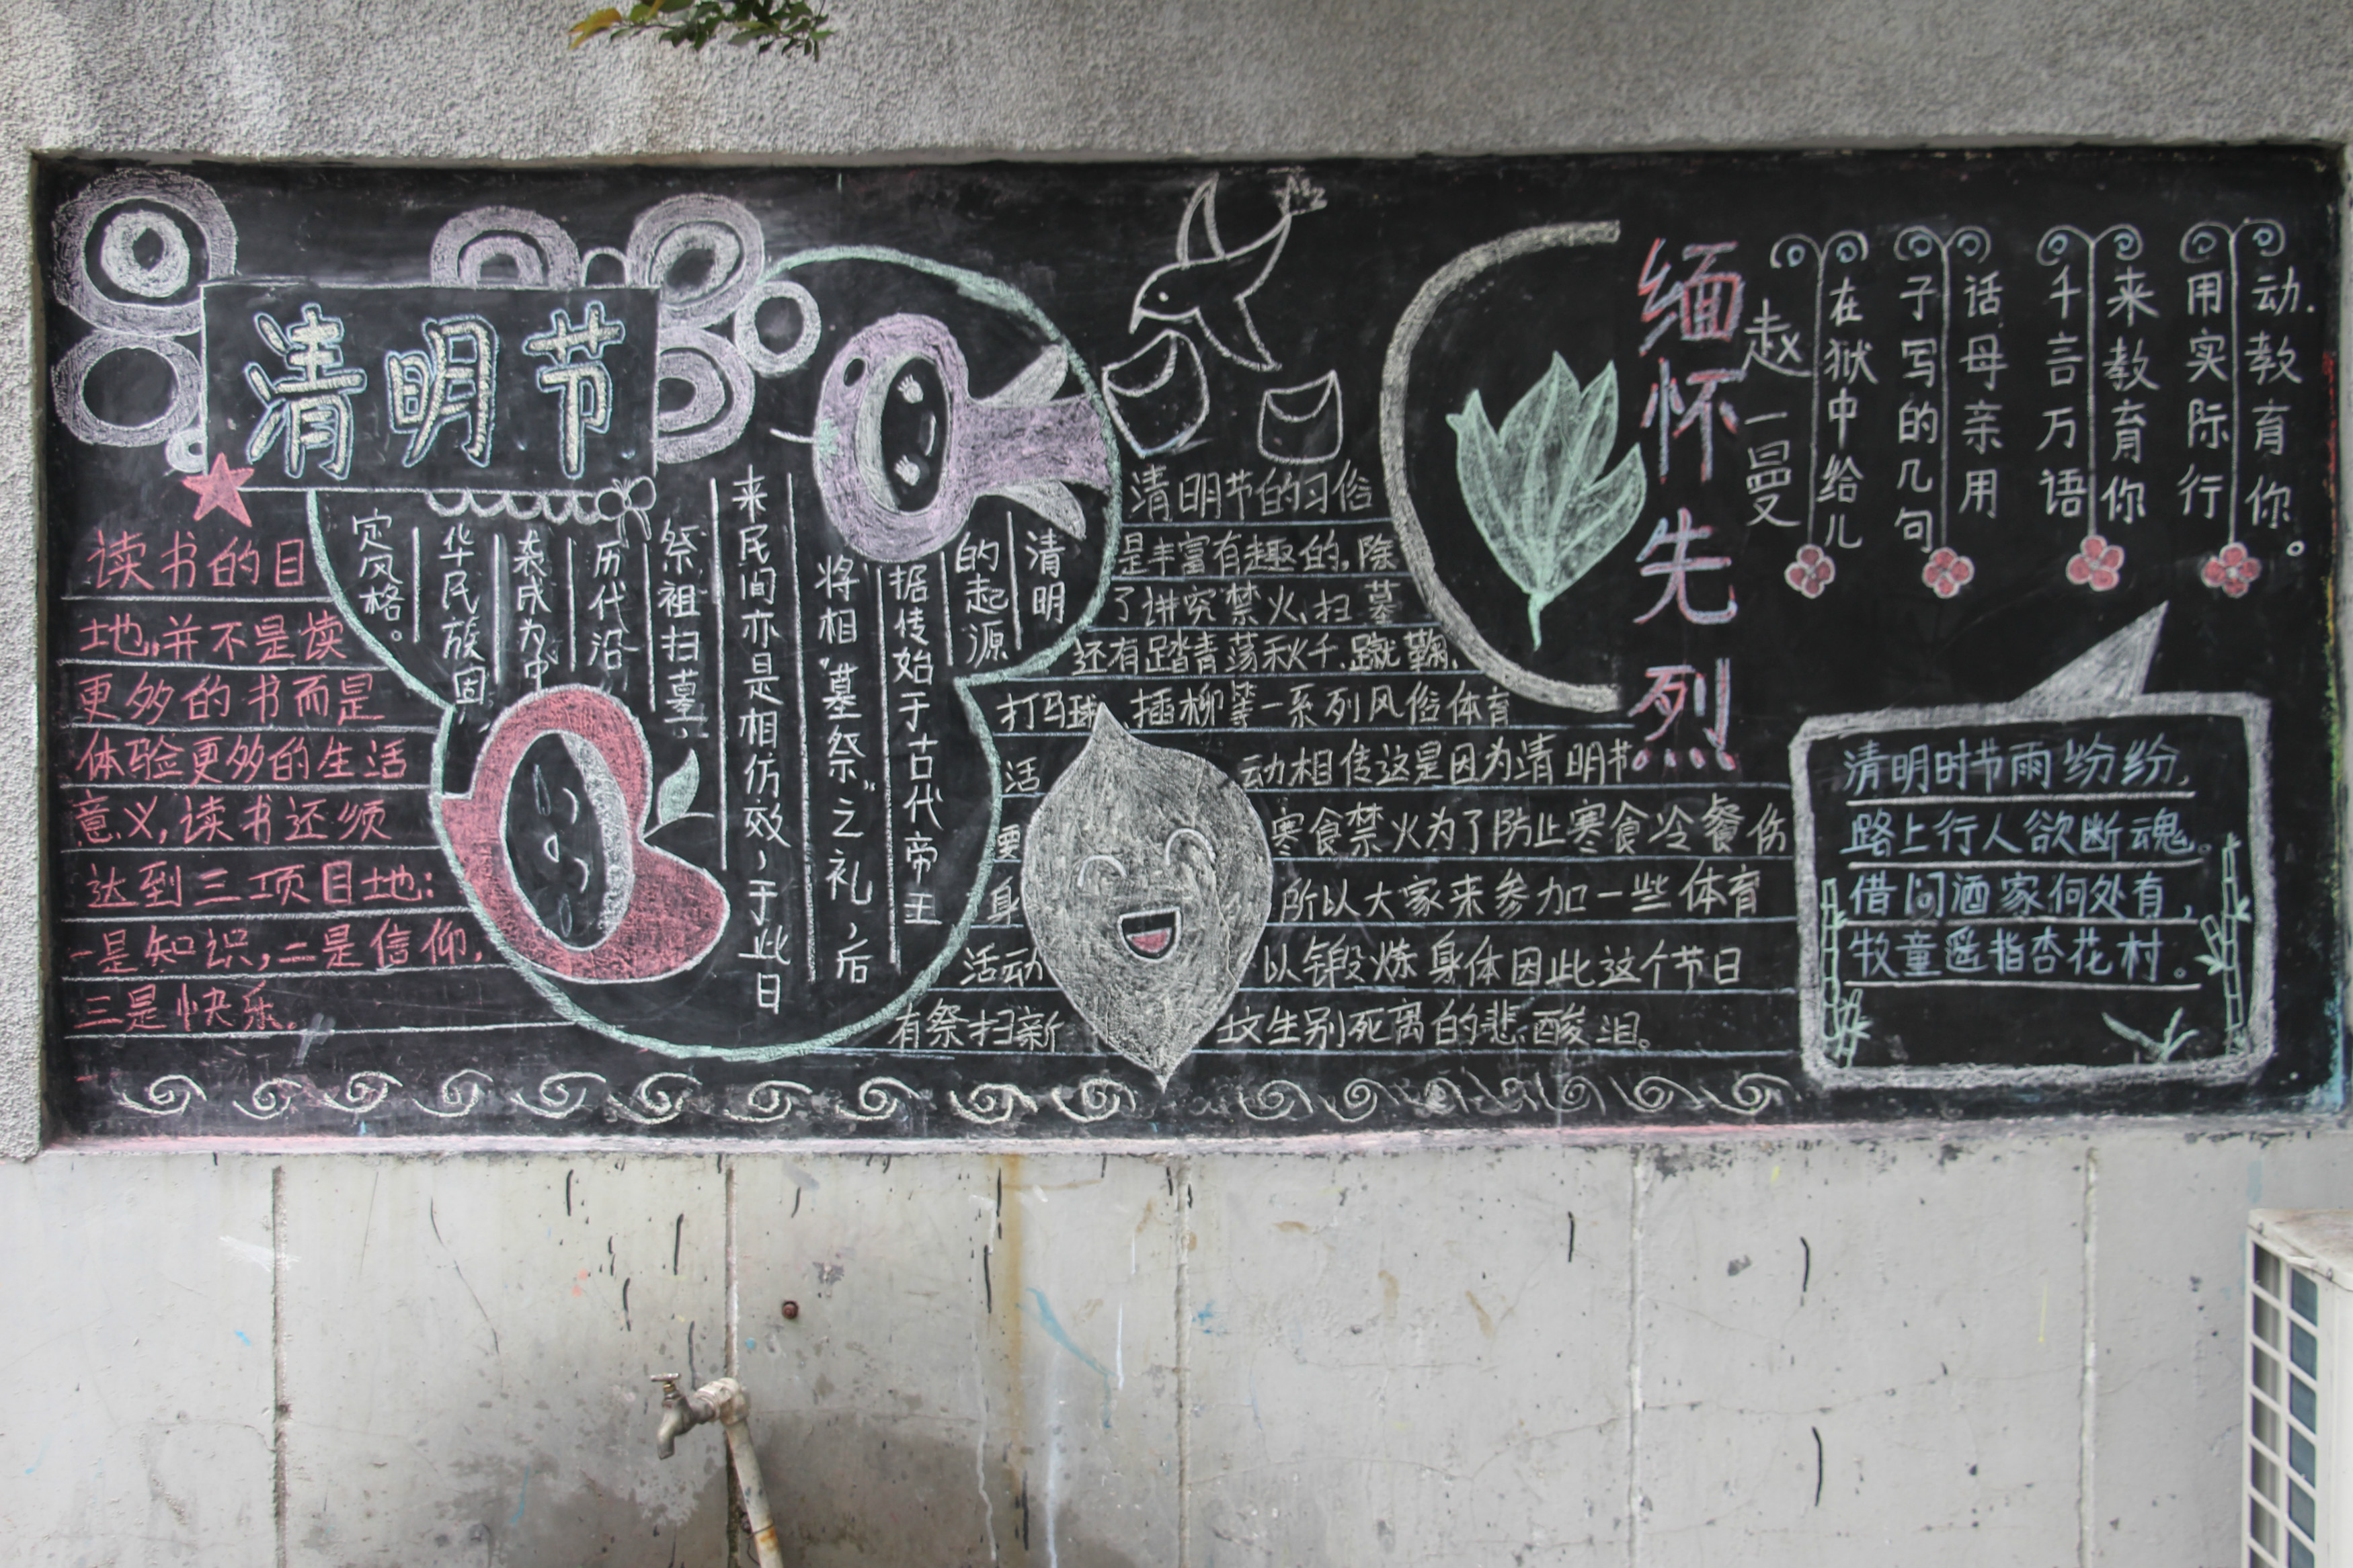 清明节
读书的目
地,并不是读
更多的书而是
体验更多的生活
意义,读书还须
达到三项目地:
一是知识,二是信仰,
三是快乐.
清明
的起源
据传始于古代帝王
将相"墓祭"之礼,后
来民间亦是相仿效,于此日
祭祖扫墓.
历代沿
袭成为中
华民族固
定风格。
清明节的习俗
是丰富有趣的,除
了讲究禁火,扫墓
还有踏青荡秋千.蹴鞠.
打马球、插柳等一系列风俗体育
活动相传这是因为清明节
要寒食禁火为了防止寒食冷餐伤
身所以大家来参加一些体育
活动以锻炼身体因此这个节日
有祭扫新坟生别死离的悲酸泪。
缅怀先烈
赵一曼
在狱中给儿
子写的几句
话母亲用
千言万语
来教育你
用实际行
动教育你。
清明时节雨纷纷,
路上行人欲断魂。
借问酒家何处有,
牧童遥指杏花村。